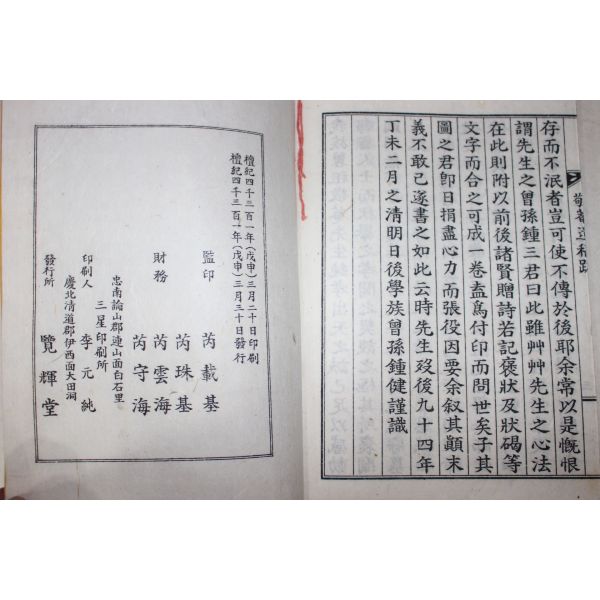 存而不泯者豈可使不傳於後耶余常以是慨恨
謂先生之曾孫鍾三君曰此雖艸艸先生之心法
在此則附以前後諸賢贈詩若記褒狀及狀碣等
文字而合之可成一卷盍爲付印而問世矣子其
圖之君卽日捐盡心力而張役因要余叙其顛末
義不敢已遂書之如此云時先生歿後九十四年
丁未二月之淸明日後學族曾孫鍾健謹識
檀紀四千三百一年(戊申)三月二十日印刷
檀紀四千三百一年(戊申)三月三十日發行
監印 芮載基
芮珠基
財務 芮雲海
芮守海
忠南論山郡連山面白石里
三星印刷所
印刷人 李元純
慶北淸道郡伊西面大田洞
發行所 覽輝堂